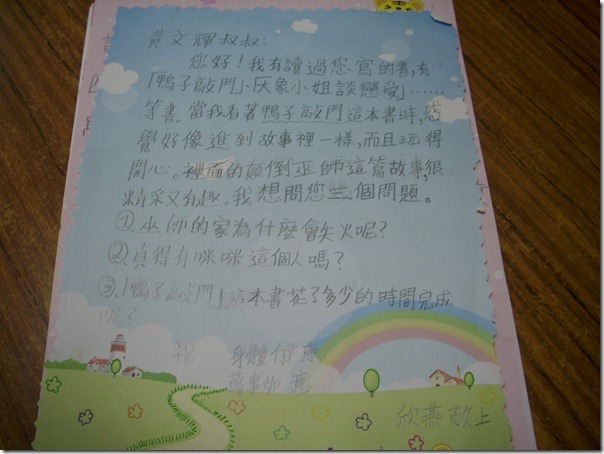 黃文輝叔叔:
您好!我有讀過您寫的書,有
「鴨子敲門」、「大象小姐談戀愛」……
等書。當我看著鴨子敲門這本書時,感
覺好像進到故事裡一樣,而且玩得
開心。裡面的顛倒巫師這篇故事,很
精采又有趣。我想問您三個問題。
①巫師的家為什麼會失火呢?
②真得有咪咪這個人嗎?
③「鴨子敲門」這本書花了多少的時間完成
呢?
祝 身體健康
萬事如意
欣燕敬上